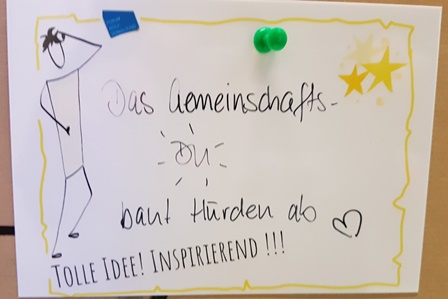 Das Gemeinschafts-
DU
baut Hürden ab
TOLLE IDEE! INSPIRIEREND !!!